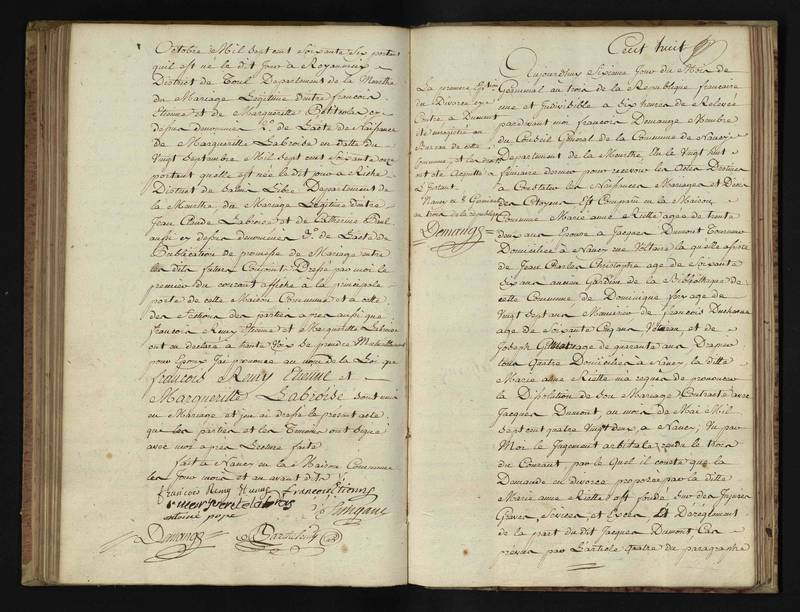 Octobre Mil Sept cent Soixante Six portant
quil est né le dit jour à Royaumeix
District de Toul Departement de la Meurthe
du Mariage Legitime d'entre françois
Etienne et de Marguerite
depuis denommés 2.° de L'acte de Naissance
de Marguerite Labroise en datte du
Vingt Septembre Mil Sept cent Soixante onze
portant quelle est née le dit jour à
District de Salin Libre Departement de
la Meurthe du Mariage Legitime d'entre
Jean Claude Labroise et de Catherine
aussi cy depus denommés 3.° de L'acte de
Publication de promesse de Mariage entre
les dits futurs Conjoints Dressé par moi le
premier du courant affiché à la principale
porte de cette Maison Commune et a celle
des Sections des parties après aussi que
françois Remy Etienne et Marguerite Labroise
ont eu declaré à haute Voix se prendre Mutuellement
pour Epoux J'ai prononcé au nom de la Loi que
françois Remy Etienne et
Marguerite Labroise sont unis
en Mariage et j'en ai dressé le present acte
que les parties et les Temoins ont signé
avec moi après Lecture faitte
fait à Nancy en la Maison Commune
les Jour mois et an avant dits
françois Remy Etienne françois Etienne
marguerite labroise
antoine
Demange
Cent huit
Aujourdhuy Sixieme jour du Mois de
Germinal an trois de la Republique francaise
une et Indivisible à Six heures de Relevée
pardevant moi françois Demange Membre
du Conseil Général de la Commune de Nancy
Departement de la Meurthe, Elu le Vingt huit
frimaire dernier pour recevoir les Actes Destinés
à Constater les Naissances Mariages et Décès
des Citoyens Est Comparu en la Maison
Commune Marie anne Rielle agée de trente
deux ans Epouse à Jacques Dumont Tourneur
Domiciliée à Nancy rue Voltaire la quelle assistée
de Jean Charles Christophe agé de Soixante
dix ans ancien Gardien de la Bibliotheque de
cette Commune de Dominique agé de
Vingt Sept ans Menuisier de françois Duchesne
agé de Soixante Cinq ans Veteran et de
Joseph agé de quarante ans
tous Quatre Domiciliés à Nancy la ditte
Marie anne Rielle m'a requis de prononcer
la Dissolution de Son Mariage Contracté avec
Jacques Dumont, au mois de Mai Mil
Sept cent quatre Vingt deux à Nancy, Vu par
Moi le Jugement arbitral rendu le trois
du Courant par le Quel il conste que la
Demande en divorce proposée par la ditte
Marie anne Rielle est fondée Sur des Injures
Graves, Sevices et Excès Et Dereglement
de la part du dit Jacques Dumont, Cas
prévus par L'article quatre du paragraphe
La premiere
du Divorce
Contre a Dumont
été enregistrée au
Bureau de cette
Commune, et les droits
ont été Acquittés
à L'instant.
Nancy ce 8 Germinal
an trois de la republique
Demange